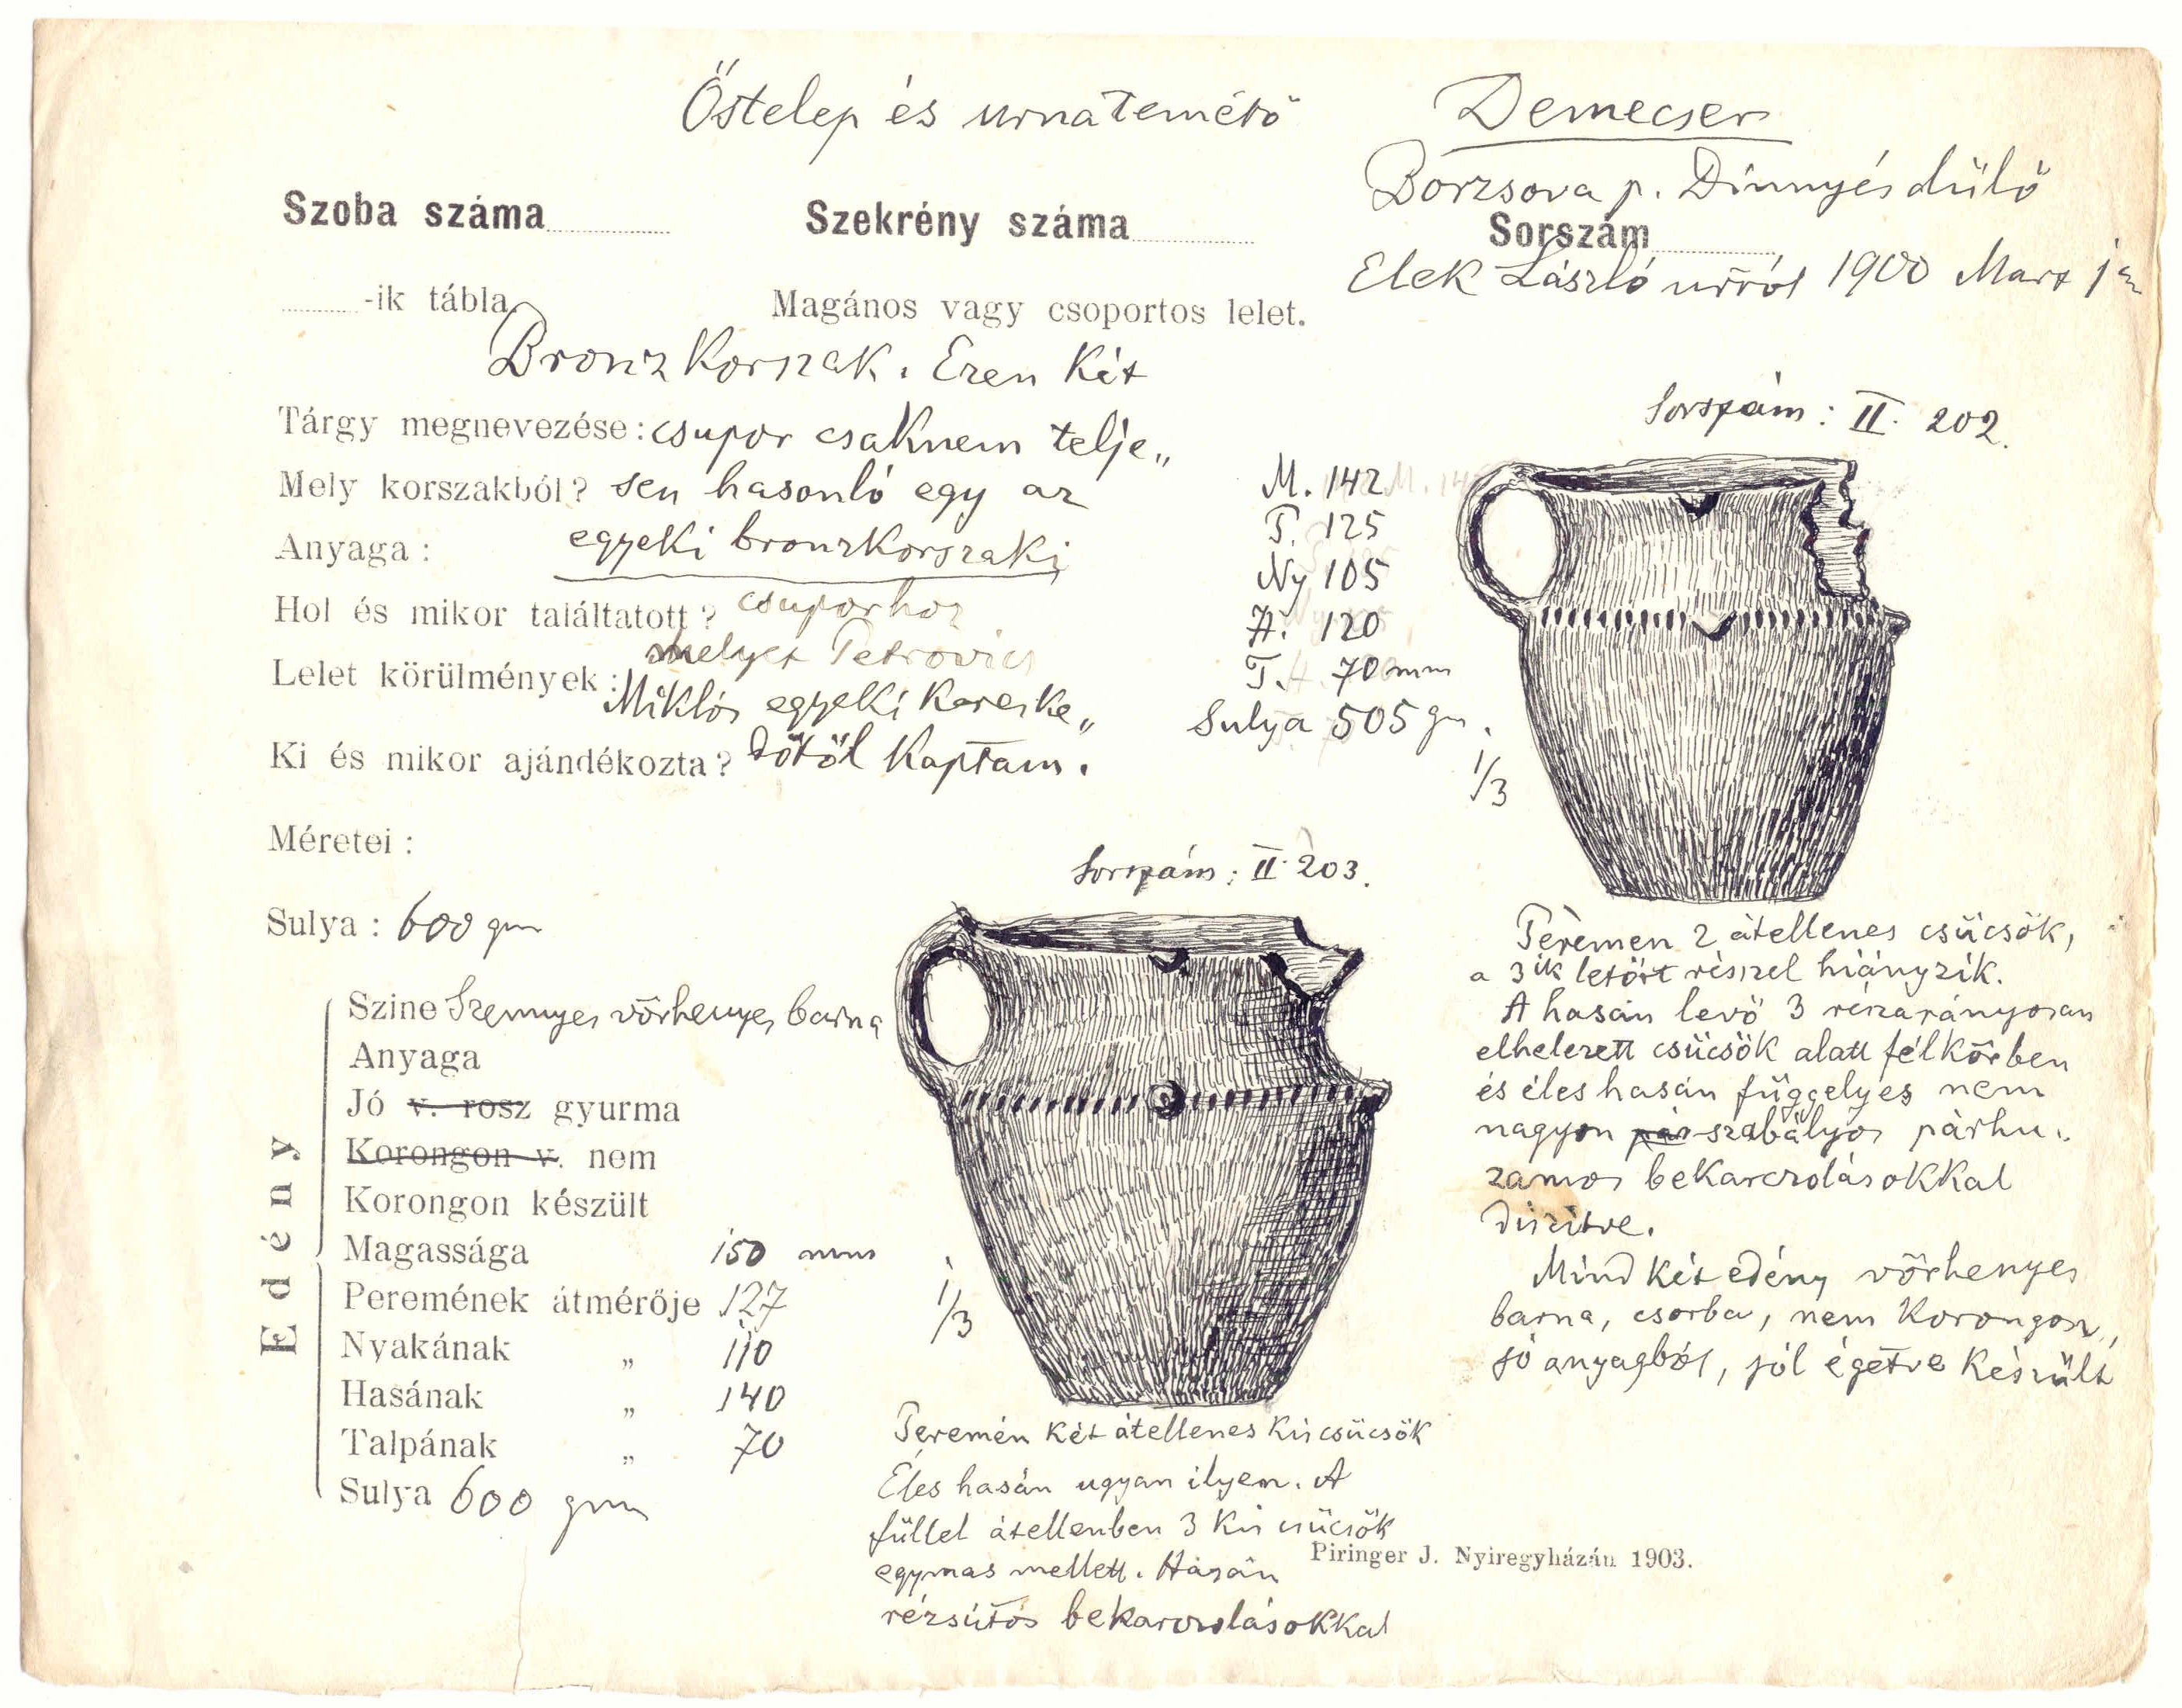 Őstelep és urnatemető
Demecser
Borzsova p. Dinnyés dülő
Szoba száma
Szekrény száma
Sorszám
Elek László urról 1900 Marz
-ik tábla.
Magános vagy csoportos lelet.
Bronzkorszak. Ezen két
Tárgy megnevezése: csupor csaknem telje„
Mely korszakból? sen hasonló egy az
Anyaga: egyeki bronzkorszaki
Hol és mikor találtatott? csuporhoz
Lelet körülmények: melyet Petrovics
Miklós egyeki kereske„
Ki és mikor ajándékozta? dőtől kaptam.
Méretei:
Sulya: 600 gm
Sorszám: II. 202.
M. 142
P. 125
Ny 105
H. 120
T. 70 mm
Sulya 505 gm.
1/3
Peremen 2 átellenes csücsök,
a 3ik letört résszel hiányzik.
A hasán levő 3 részarányosan
elhelezett csücsök alatt félkörben
és éles hasán függelyes nem
nagyon pár szabályos párhu„
zamos bekarczolásokkal
diszitve.
Mind két edény vörhenyes
barna, csorba, nem korongon,
jó anyagból, jól égetve készült
Sorszám: II. 203.
1/3
Peremén két átellenes kis csücsök
Éles hasán ugyan ilyen. A
füllel átellenben 3 kis csücsök
egymas mellett. Hasán
rézsútós bekarczolásokkal
Edény
Szine Szennyes vörhenyes barna
Anyaga
Jó v. rosz gyurma
Korongon v. nem
Korongon készült
Magassága 150 mm
Peremének átmérője 127
Nyakának „ 110
Hasának „ 140
Talpának „ 70
Sulya 600 gm
Piringer J. Nyiregyházán 1903.